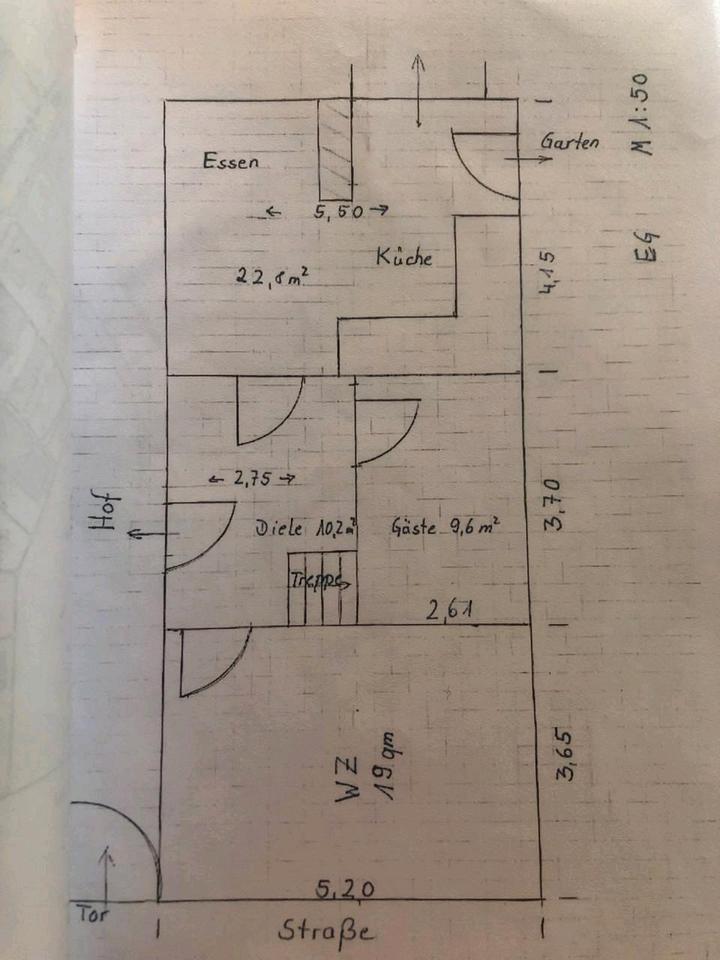 M 1:50
EG
Garten
Essen
← 5,50 →
Küche
22,8m²
4,15
← 2,75 →
Hof
Diele 10,2m²
Gäste 9,6m²
3,70
Treppe
2,61
WZ
19qm
3,65
5,20
Tor
Straße